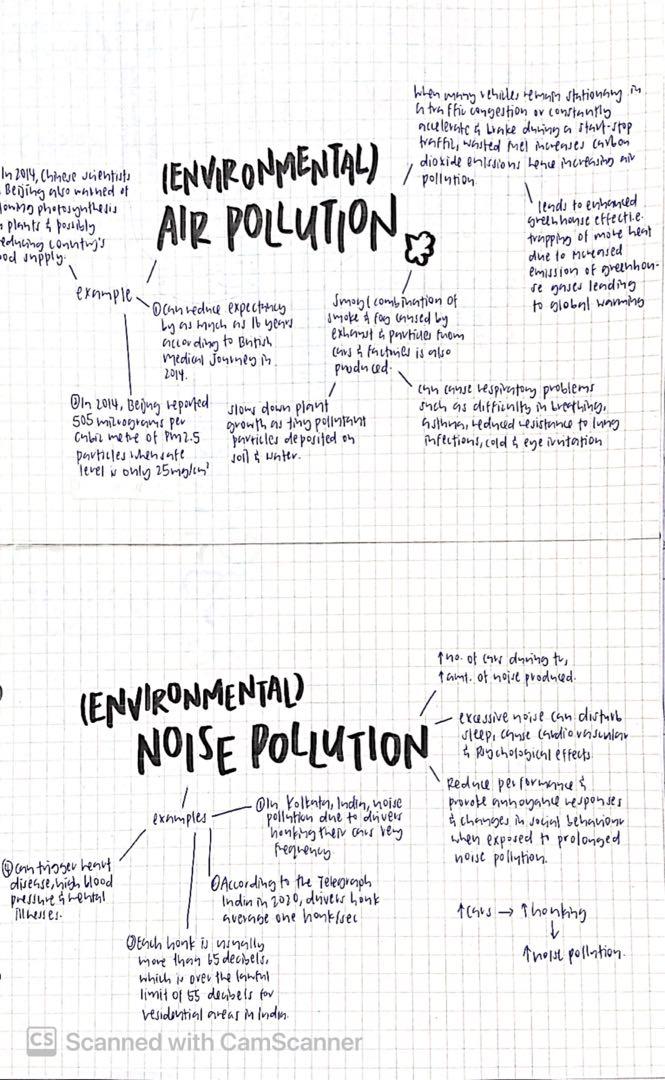 (ENVIRONMENTAL)
AIR POLLUTION
When many vehicles remain stationary in
a traffic congestion or constantly
accelerate & brake during a start-stop
traffic, wasted fuel increases carbon
dioxide emissions hence increasing air
pollution.
leads to enhanced
greenhouse effect i.e.
trapping of more heat
due to increased
emission of greenhou-
se gases leading
to global warming
In 2014, Chinese scientists
Beijing also warned of
photosynthesis
plants & possibly
country's
supply.
example
① Can reduce expectancy
by as much as 16 years
according to British
Medical Journey in
2014.
In 2014, Beijing reported
505 micrograms per
cubic metre of PM2.5
particles when safe
level is only 25mg/cm³
Smog (combination of
smoke & fog caused by
exhaust & particles from
cars & factories is also
produced.
slows down plant
growth as tiny pollutant
particles deposited on
soil & water.
can cause respiratory problems
such as difficulty in breathing,
asthma, reduced resistance to lung
infections, cold & eye irritation
(ENVIRONMENTAL)
NOISE POLLUTION
↑ no. of cars during tc,
↑ amt. of noise produced.
excessive noise can disturb
sleep, cause cardiovascular
& Psychological effects
Reduce performance &
provoke annoyance responses
& changes in social behaviour
when exposed to prolonged
noise pollution.
↑ cars → ↑ honking
↓
↑ noise pollution.
examples
① In Kolkata, India, noise
pollution due to drivers
honking their cars very
frequency
According to the Telegraph
India in 2020, drivers honk
average one honk/sec
Each honk is usually
more than 65 decibels,
which is over the lawful
limit of 55 decibels for
residential areas in India.
④ Can trigger heart
disease, high blood
pressure & mental
illnesses.
CS Scanned with CamScanner